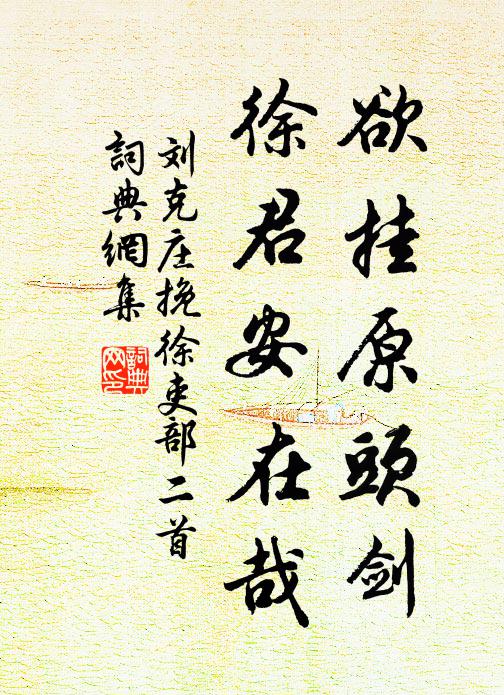 欲挂原頭剑
徐君安在哉
刘克庄挽徐吏部二首
詞典網集
詞典网印